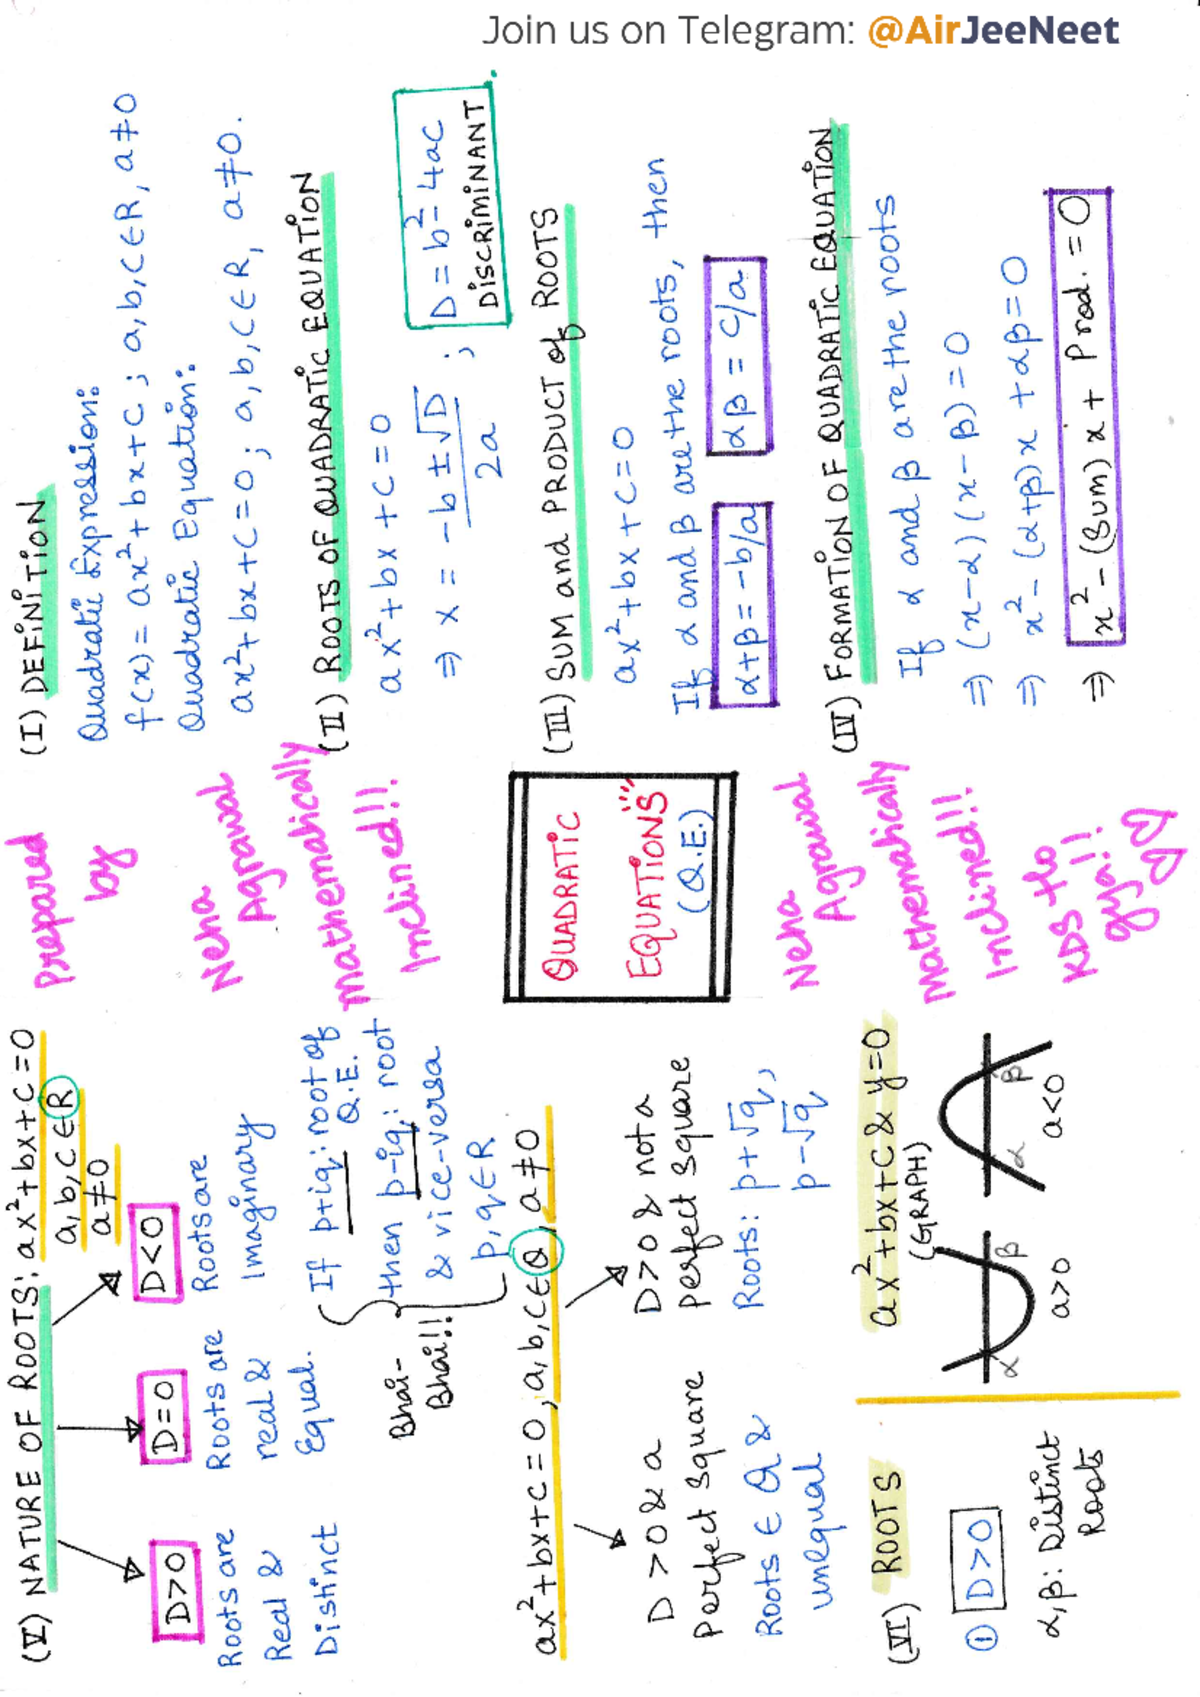 Join us on Telegram: @AirJeeNeet
(I) DEFINITION
Quadratic Expression:
f(x) = ax²+bx+c ; a,b,c∈R, a≠0
Quadratic Equation:
ax²+bx+c=0 ; a,b,c∈R, a≠0.
(II) ROOTS OF QUADRATIC EQUATION
ax²+bx+c=0
⇒ x = (-b±√D)/2a ; D = b²-4ac
DISCRIMINANT
(III) SUM and PRODUCT of ROOTS
ax²+bx+c=0
If α and β are the roots, then
α+β=-b/a αβ = c/a
(IV) FORMATION OF QUADRATIC EQUATION
If α and β are the roots
⇒ (x-α)(x-β)=0
⇒ x²-(α+β)x+αβ=0
⇒ x²-(Sum)x+ Prod.=0
Prepared
by
Neha
Agrawal
Mathematically
Inclined!!
QUADRATIC
EQUATIONS"
(Q.E.)
Neha
Agrawal
Mathematically
Inclined!!
KDS tho
gya!!
(V) NATURE OF ROOTS: ax²+bx+c=0
a,b,c∈R
a≠0
D>0 D=0 D<0
Roots are
Real &
Distinct
Roots are
real &
Equal.
Roots are
Imaginary
If p+iq: root of
Q.E.
then p-iq: root
& vice-versa
p,q∈R
Bhai-
Bhai!!
ax²+bx+c=0, a,b,c∈Q, a≠0
D>0 & a
Perfect Square
Roots ∈ Q &
unequal
D>0 & not a
perfect square
Roots: p+√q,
p-√q
(VI) ROOTS
① D>0
α,β: Distinct
Roots
ax²+bx+c & y=0
(GRAPH)
α β
a>0
α β
a<0